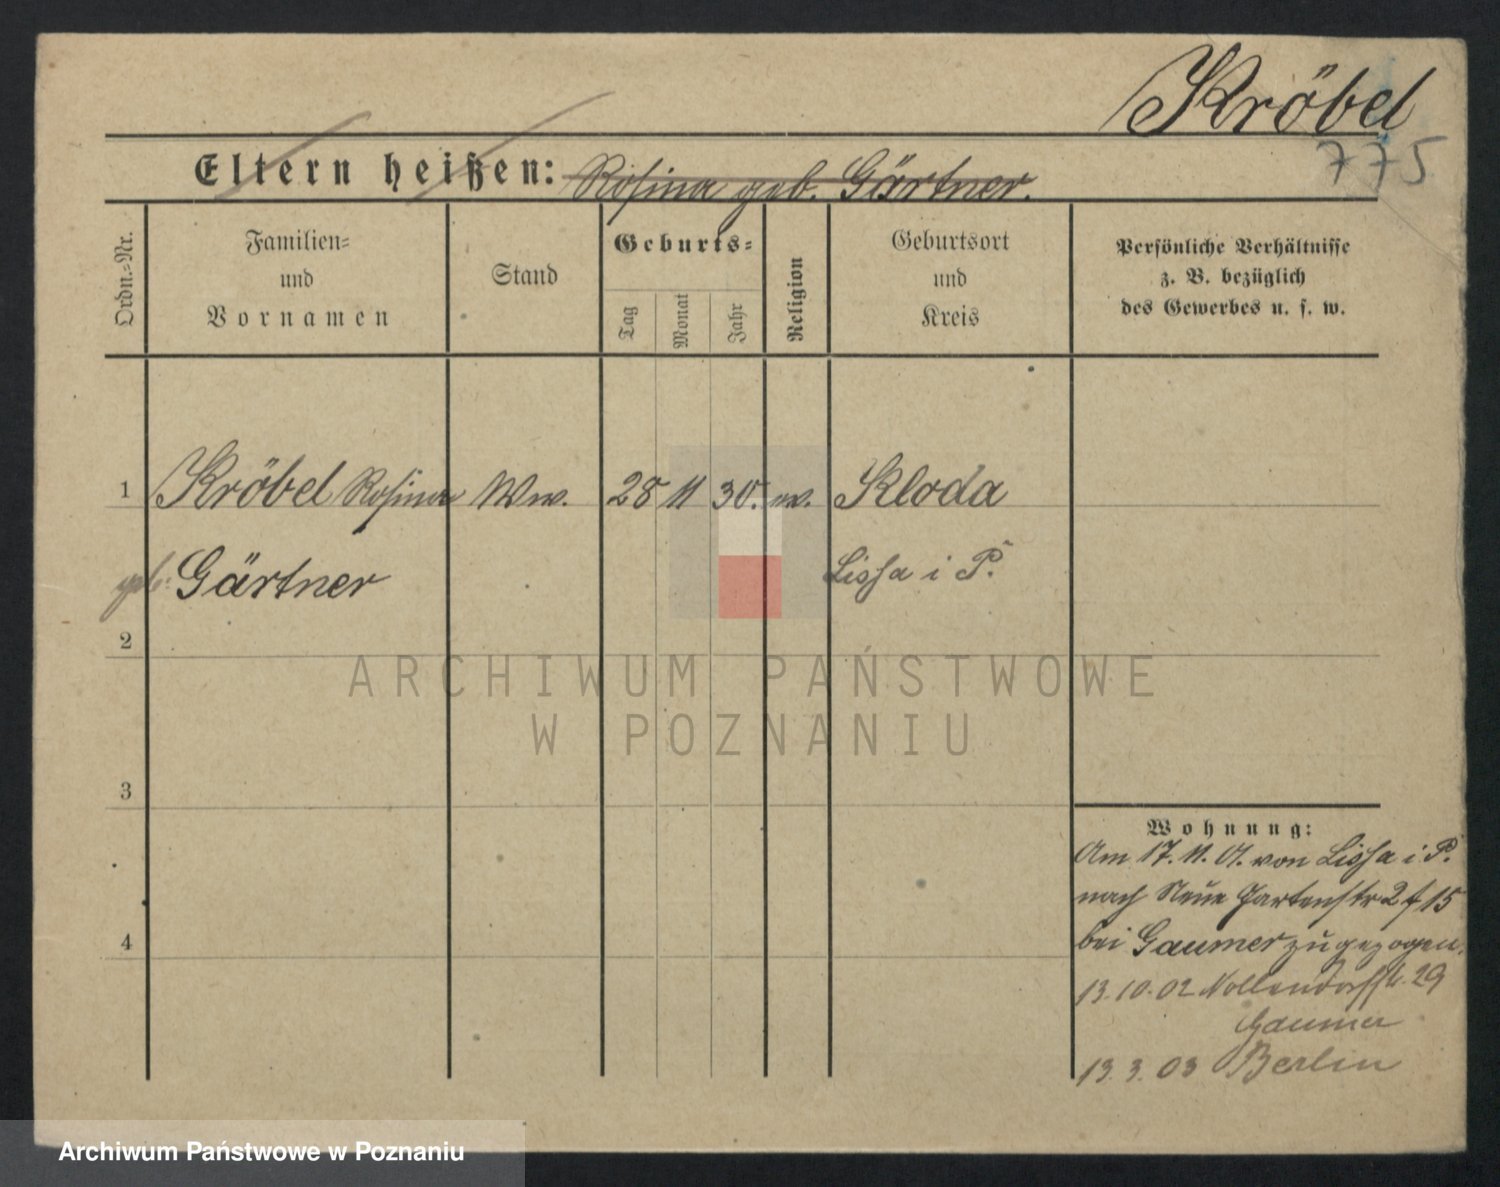 Kröbel
775
Eltern heißen: Rosina geb. Gärtner.
Ordn.-Nr.
Familien-
und
Vornamen
Stand
Geburts-
Tag
Monat
Jahr
Religion
Geburtsort
und
Kreis
Persönliche Verhältnisse
z. B. bezüglich
des Gewerbes u. s. w.
1 Kröbel Rosina Ww. 28 11 30. ev. Kloda
geb: Gärtner Lissa i P.
2
ARCHIWUM PAŃSTWOWE
W POZNANIU
3
Wohnung:
Am 17. 11. 01. von Lissa i. P.
nach Neue Gartenstr 2 f 15
4
bei Gaumer zugezogen.
13. 10. 02 Nollendorffstr. 29
Gaumer
13. 3. 03 Berlin
Archiwum Państwowe w Poznaniu